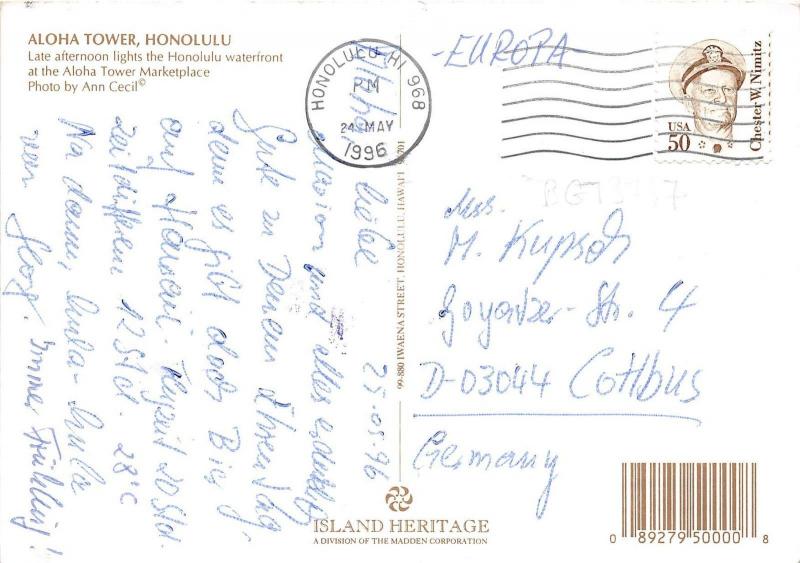 ALOHA TOWER, HONOLULU
Late afternoon lights the Honolulu waterfront
at the Aloha Tower Marketplace
Photo by Ann Cecil©
HONOLULU HI 968
PM
24 MAY
1996
-EUROPA-
USA
50
Chester W. Nimitz
Liebe
25.05.96
und alles
Gute zu Deinem Ehrentag,
denn es gibt doch Bier
auf Hawaii. Flugzeit 20 Std.
Zeitdifferenz 12 Std. 28°C
Na dann, hula-hula
von Immer Frühling!
M. Kupsch
Str. 4
D-03044 Cottbus
Germany
99-880 IWAENA STREET, HONOLULU, HAWAI'I 96701
ISLAND HERITAGE
A DIVISION OF THE MADDEN CORPORATION
0 89279 50000 8